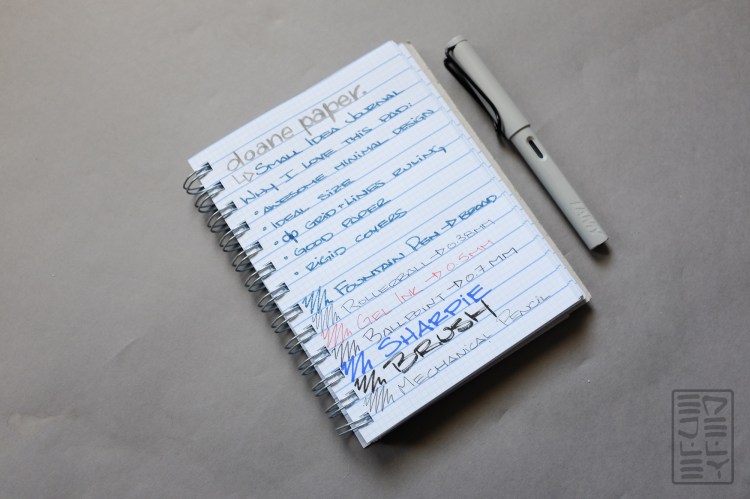 doane paper.
↳ Small Idea Journal
Why I love this pad:
• awesome minimal design
• ideal size
• grid+lines ruling
• good paper
• rigid covers
Fountain Pen → Broad
Rollerball → 0.38mm
Gel Ink → 0.5mm
Ballpoint → 0.7mm
Sharpie
Brush
Mechanical Pencil
LAMY